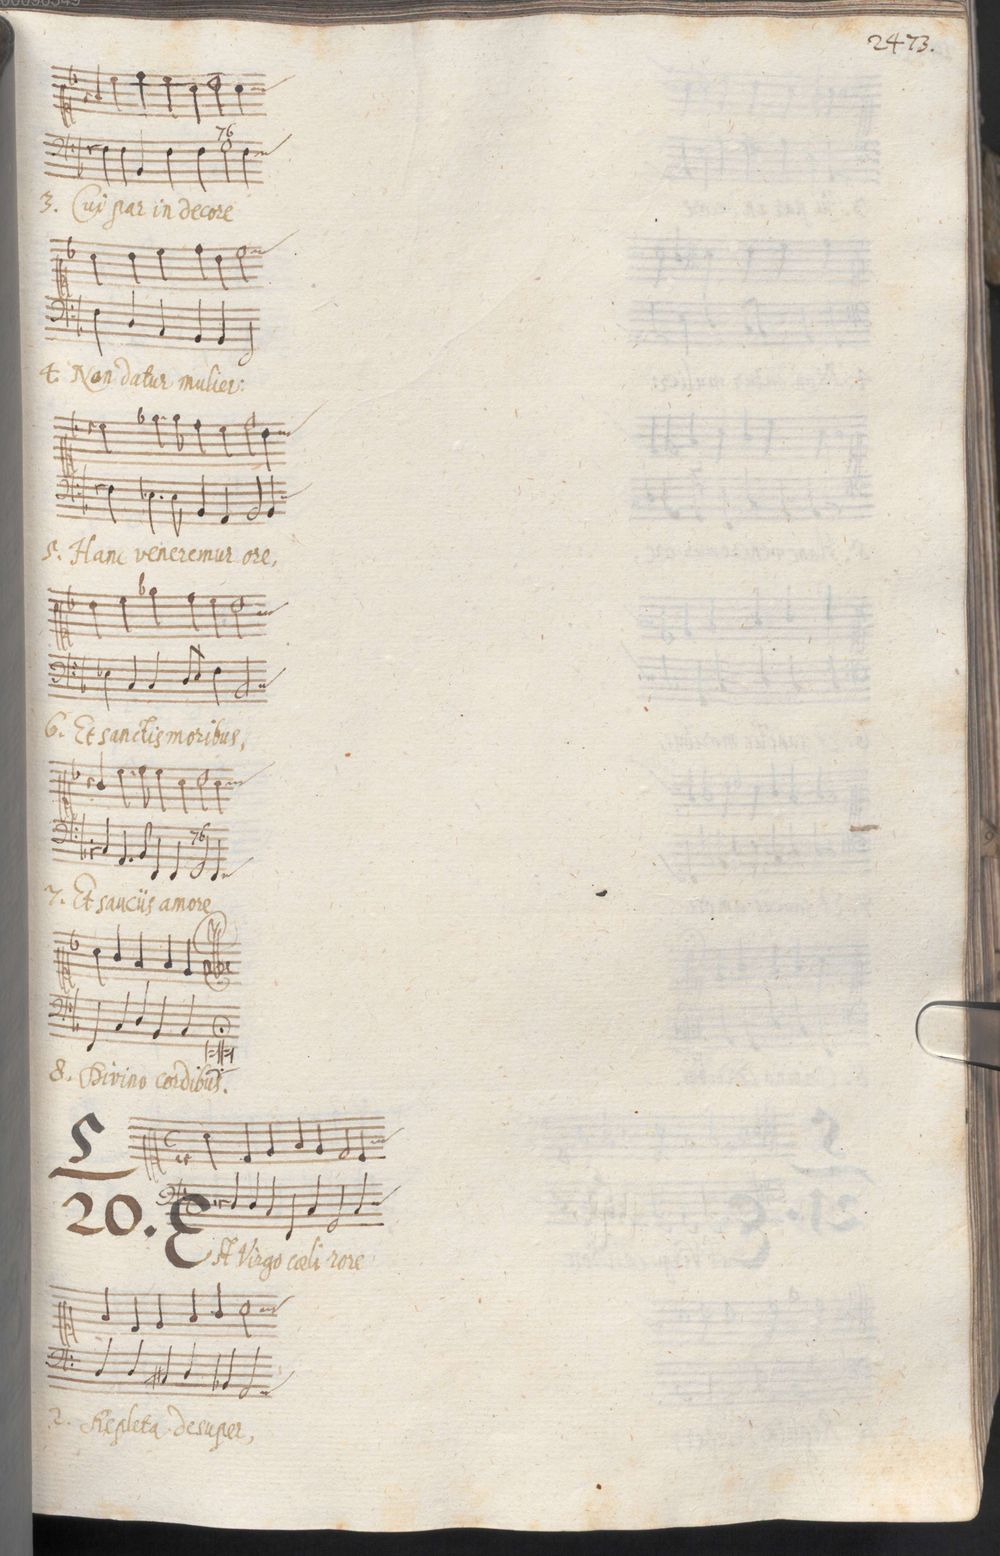 2473.
76
3. Cui par in decore
4. Non datur mulier:
5. Hanc veneremur ore,
6. Et sanctis moribus,
76
7. Et sauciis amore
8. Divino cordibus.
5
20. Est Virgo cœli rore
2. Repleta desuper,